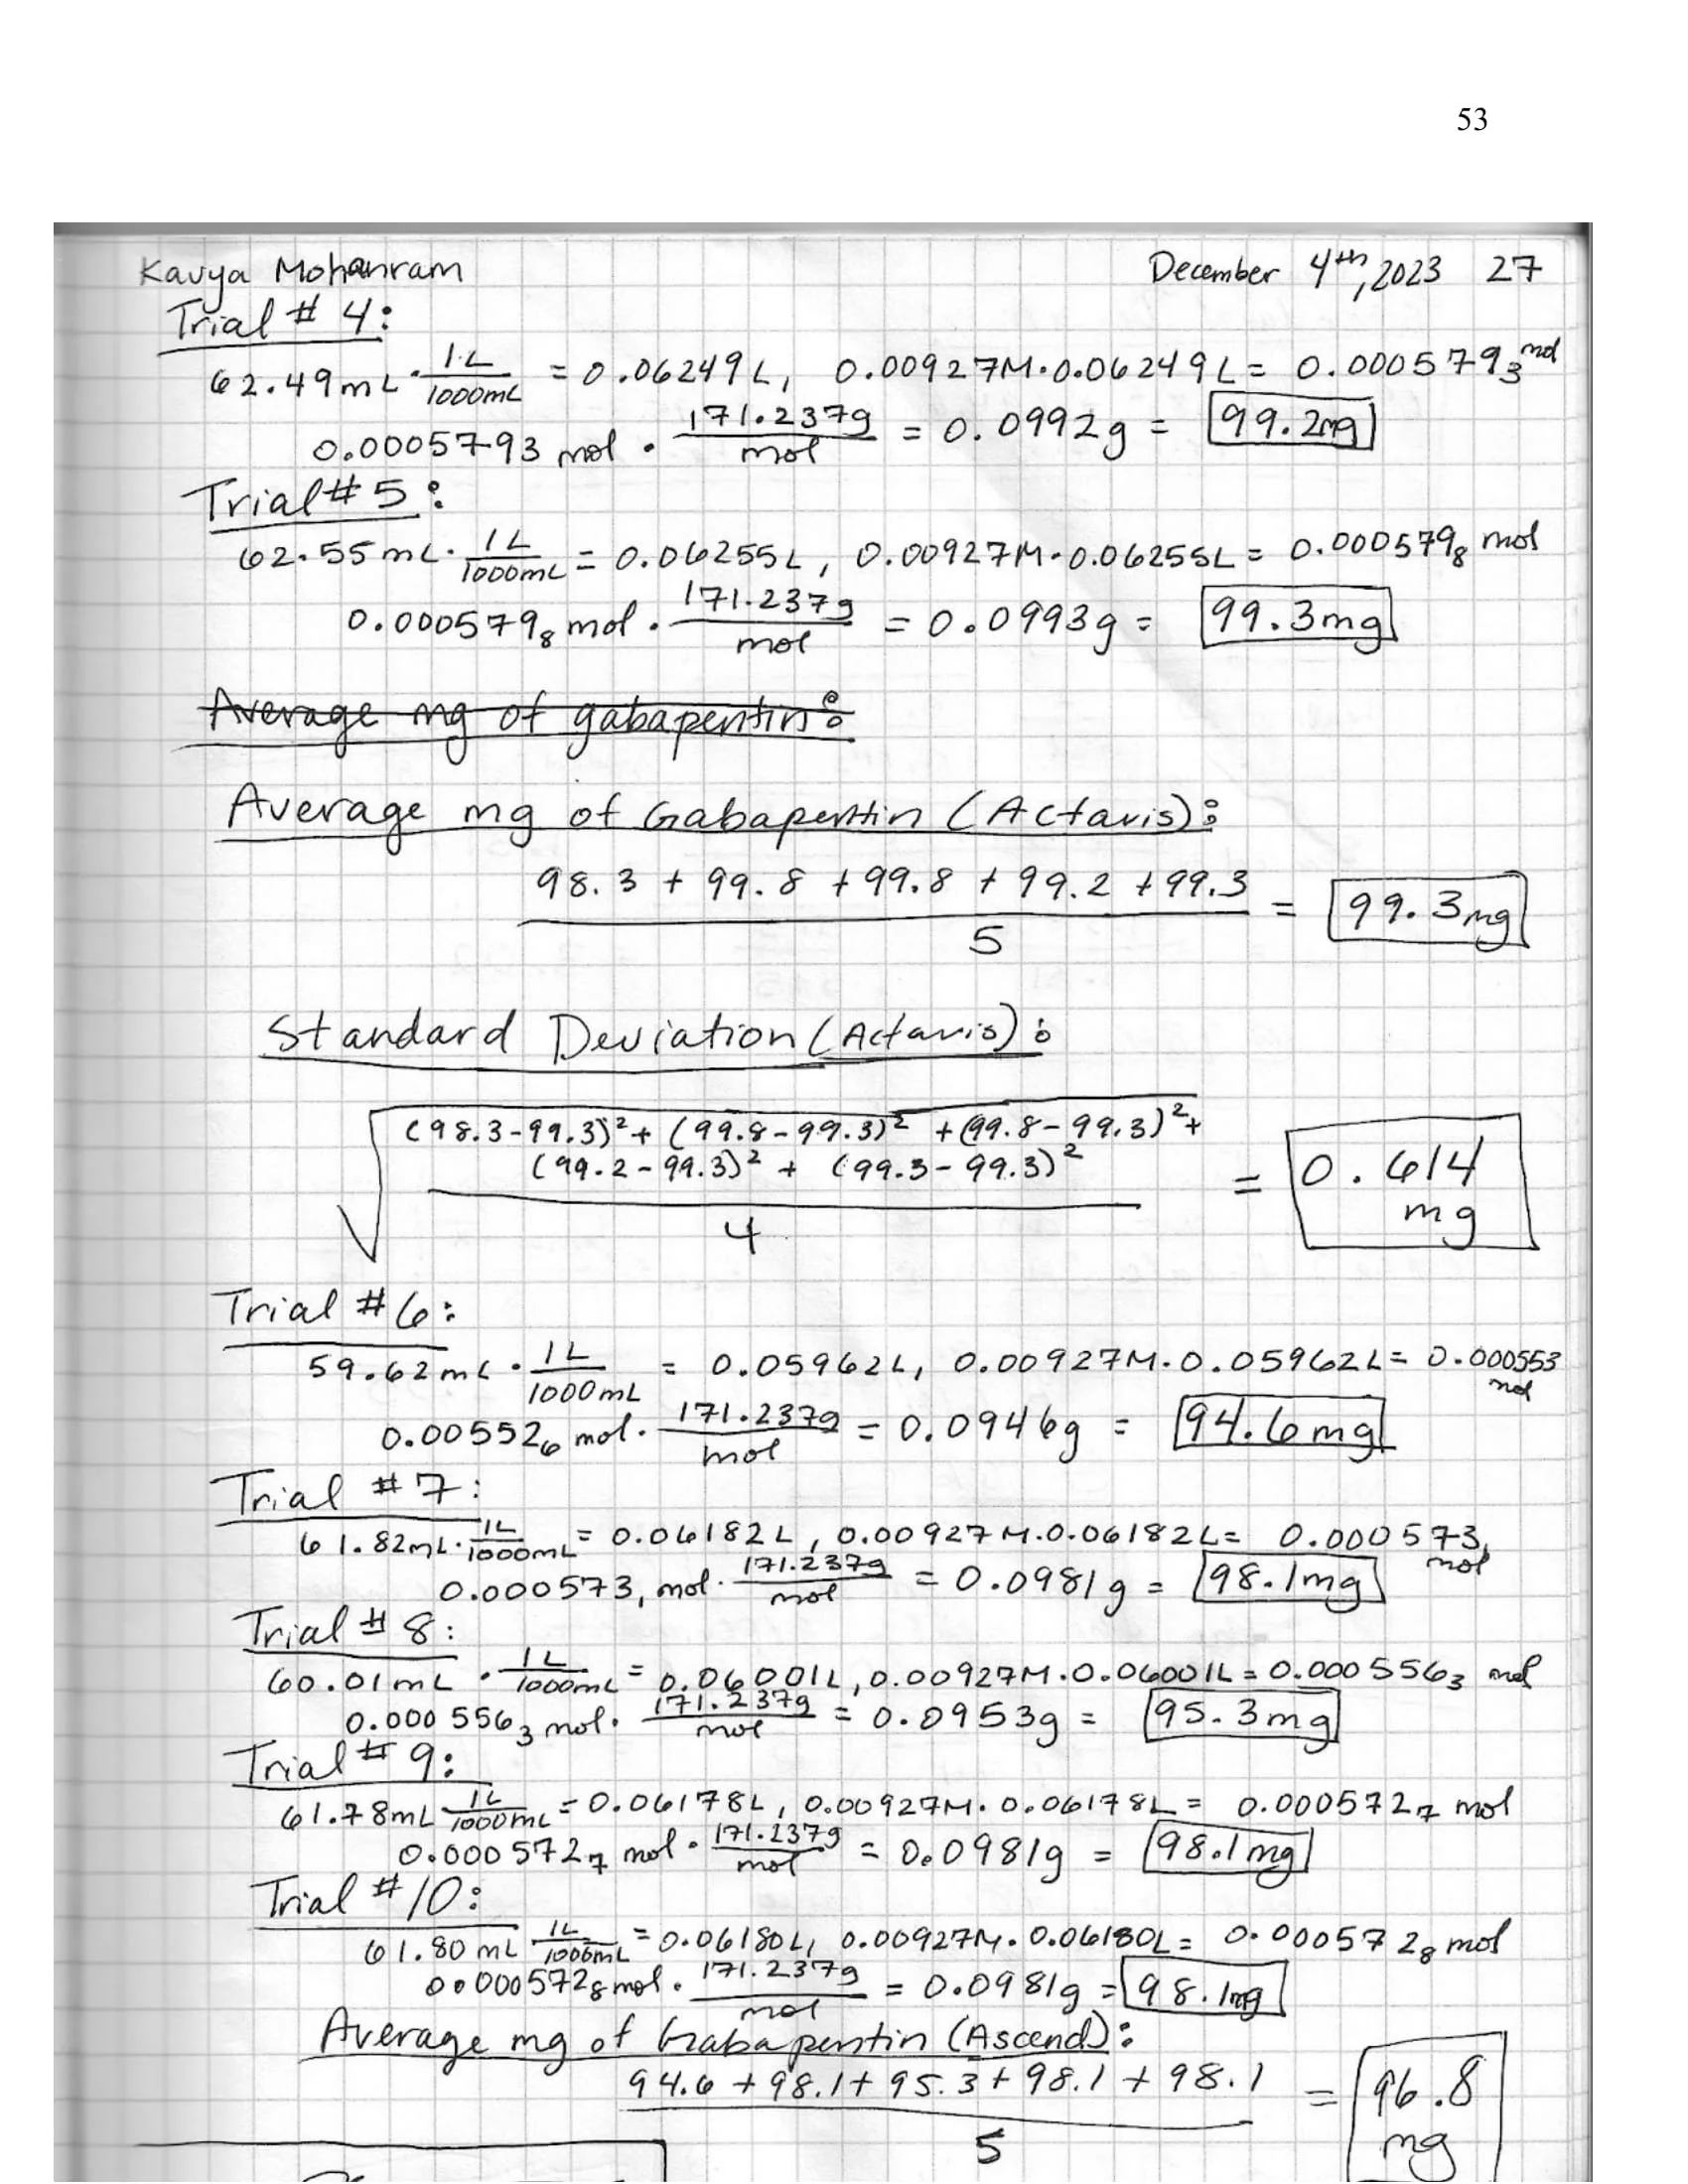 53
Kavya Mohanram December 4th, 2023 27
Trial # 4:
62.49mL · 1L/1000mL = 0.06249L, 0.00927M·0.06249L = 0.0005793 mol
0.0005793 mol · 171.237g/mol = 0.0992g = 99.2mg
Trial #5:
62.55mL · 1L/1000mL = 0.06255L, 0.00927M·0.06255L = 0.000579₈ mol
0.000579₈ mol · 171.237g/mol = 0.0993g = 99.3mg
Average mg of gabapentin:
Average mg of Gabapentin (Actavis):
98.3 + 99.8 + 99.8 + 99.2 + 99.3
5
= 99.3mg
Standard Deviation (Actavis):
√ (98.3-99.3)² + (99.8-99.3)² + (99.8-99.3)² +
(99.2-99.3)² + (99.3-99.3)²
4
= 0.614 mg
Trial #6:
59.62mL · 1L/1000mL = 0.05962L, 0.00927M·0.05962L = 0.000553 mol
0.00552₆ mol · 171.237g/mol = 0.0946g = 94.6mg
Trial #7:
61.82mL · 1L/1000mL = 0.06182L, 0.00927M·0.06182L = 0.000573₁ mol
0.000573₁ mol · 171.237g/mol = 0.0981g = 98.1mg
Trial #8:
60.01mL · 1L/1000mL = 0.06001L, 0.00927M·0.06001L = 0.000556₃ mol
0.000556₃ mol · 171.237g/mol = 0.0953g = 95.3mg
Trial #9:
61.78mL 1L/1000mL = 0.06178L, 0.00927M·0.06178L = 0.000572₇ mol
0.000572₇ mol · 171.237g/mol = 0.0981g = 98.1mg
Trial #10:
61.80mL 1L/1000mL = 0.06180L, 0.00927M·0.06180L = 0.000572₈ mol
0.000572₈ mol · 171.237g/mol = 0.0981g = 98.1mg
Average mg of Gabapentin (Ascend):
94.6 + 98.1 + 95.3 + 98.1 + 98.1
5
= 96.8 mg